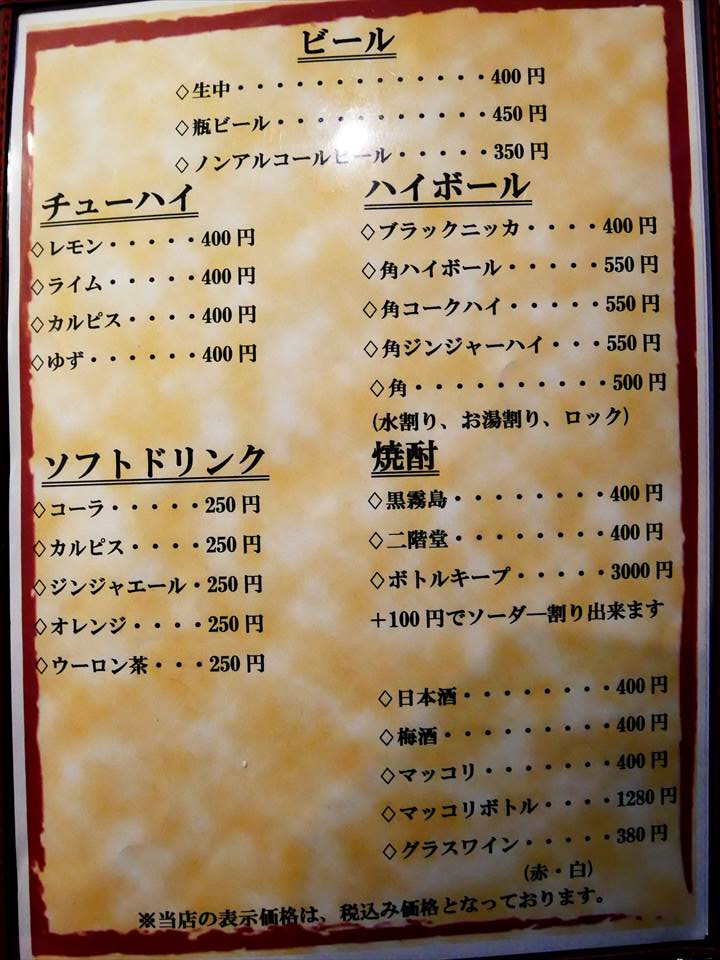 ビール
◇生中・・・・・・・・・・・・・400円
◇瓶ビール・・・・・・・・・・・450円
◇ノンアルコールビール・・・・・350円
チューハイ
◇レモン・・・・・400円
◇ライム・・・・・400円
◇カルピス・・・・400円
◇ゆず・・・・・・400円
ハイボール
◇ブラックニッカ・・・・400円
◇角ハイボール・・・・・550円
◇角コークハイ・・・・・550円
◇角ジンジャーハイ・・・550円
◇角・・・・・・・・・・500円
(水割り、お湯割り、ロック)
ソフトドリンク
◇コーラ・・・・・250円
◇カルピス・・・・250円
◇ジンジャエール・250円
◇オレンジ・・・・250円
◇ウーロン茶・・・250円
焼酎
◇黒霧島・・・・・・・・400円
◇二階堂・・・・・・・・400円
◇ボトルキープ・・・・・3000円
＋100円でソーダ―割り出来ます
◇日本酒・・・・・・・・400円
◇梅酒・・・・・・・・・400円
◇マッコリ・・・・・・・400円
◇マッコリボトル・・・・1280円
◇グラスワイン・・・・・380円
(赤・白)
※当店の表示価格は、税込み価格となっております。